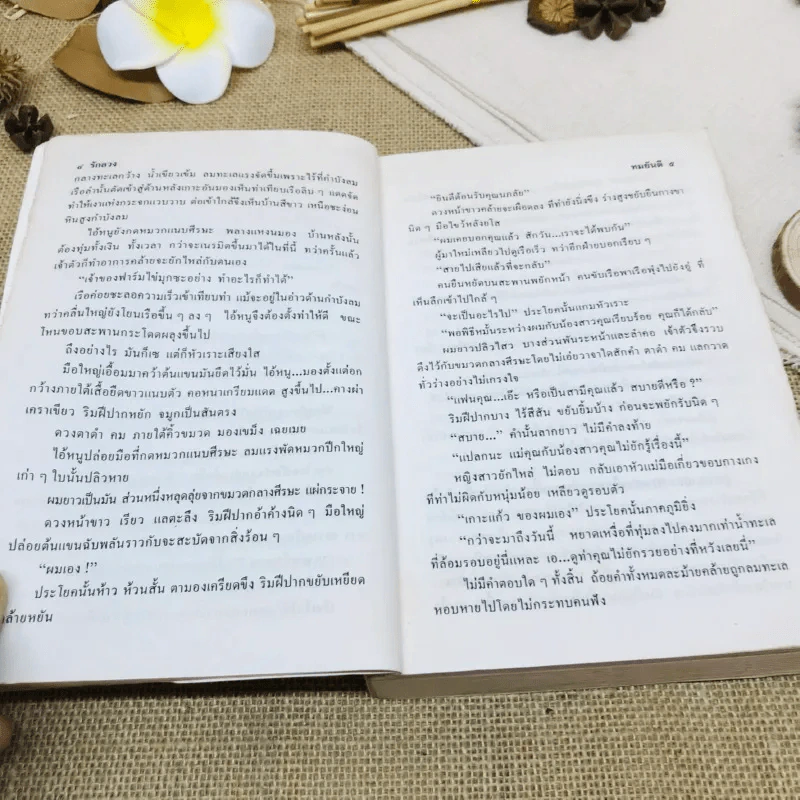 ๔ รักลวง
กลางทะเลกว้าง น้ำเขียวเข้ม ลมทะเลแรงจัดขึ้นเพราะไร้ที่กำบังลม
เรือลำนั้นตัดเข้าสู่ด้านหลังเกาะอันมองเห็นท่าเทียบเรือลิบ ๆ แดดจัด
ทำให้เงาแห่งกระจกแวบวาบ ต่อเข้าใกล้จึงเห็นบ้านสีขาว เหนือชะง่อน
หินสูงกำบังลม
ไอ้หนูยังกดหมวกแนบศีรษะ พลางแหงนมอง บ้านหลังนั้น
ต้องทุ่มทั้งเงิน ทั้งเวลา กว่าจะเนรมิตขึ้นมาได้ในที่นี้ ทว่าครั้นแล้ว
เจ้าตัวก็ทำอาการคล้ายจะยักไหล่กับตนเอง
“เจ้าของฟาร์มไข่มุกซะอย่าง ทำอะไรก็ทำได้”
เรือค่อยชะลอความเร็วเข้าเทียบท่า แม้จะอยู่ในอ่าวด้านกำบังลม
ทว่าคลื่นใหญ่ยังโยนเรือขึ้น ๆ ลง ๆ ไอ้หนูจึงต้องตั้งท่าให้ดี ขณะ
โหนขอบสะพานกระโดดผลุงขึ้นไป
ถึงอย่างไร มันก็เซ แต่ก็หัวเราะเสียงใส
มือใหญ่เอื้อมมาคว้าต้นแขนมันยึดไว้มั่น ไอ้หนู...มองตั้งแต่อก
กว้างภายใต้เสื้อยืดขาวแนบตัว คอหนาเกรียมแดด สูงขึ้นไป...คางฝ่า
เคราเขียว ริมฝีปากหยัก จมูกเป็นสันตรง
ดวงตาดำ คม ภายใต้คิ้วขมวด มองเขม็ง เฉยเมย
ไอ้หนูปล่อยมือที่กดหมวกแนบศีรษะ ลมแรงพัดหมวกปีกใหญ่
เก่า ๆ ใบนั้นปลิวหาย
ผมยาวเป็นมัน ส่วนหนึ่งหลุดลุ่ยจากขมวดกลางศีรษะ แผ่กระจาย !
ดวงหน้าขาว เรียว แลตะลึง ริมฝีปากอ้าค้างนิด ๆ มือใหญ่
ปล่อยต้นแขนฉับพลันราวกับจะสะบัดจากสิ่งร้อน ๆ
“ผมเอง !”
ประโยคนั้นห้าว ห้วนสั้น ตามองเครียดขึง ริมฝีปากขยับเหยียด
คล้ายหยัน
ทมยันตี ๕
“ยินดีต้อนรับคุณนภลัย”
ดวงหน้าขาวคล้ายจะเผือดลง ที่ท่ายังนิ่งขึง ร่างสูงขยับยืนกางขา
นิด ๆ มือไขว้หลังยโส
“ผมเคยบอกคุณแล้ว สักวัน...เราจะได้พบกัน”
ผู้มาใหม่เหลียวไปดูเรือเร็ว ทว่าอีกฝ่ายบอกเรียบ ๆ
“สายไปเสียแล้วที่จะกลับ”
คนยืนหยัดบนสะพานพยักหน้า คนขับเรือพาเรือพุ่งไปยังอู่ ที่
เห็นลึกเข้าไปใกล้ ๆ
“จะเป็นอะไรไป” ประโยคนั้นแกมหัวเราะ
“พอพิธีหมั้นระหว่างผมกับน้องสาวคุณเรียบร้อย คุณก็ได้กลับ”
ผมยาวปลิวไสว บางส่วนพันระหน้าและลำคอ เจ้าตัวจึงรวบ
ดึงไว้กับขมวดกลางศีรษะโดยไม่เอ่ยวาจาใดสักคำ ตาดำ คม แลกวาด
ทั่วร่างอย่างไม่เกรงใจ
“แฟนคุณ...เอ๊ะ หรือเป็นสามีคุณแล้ว สบายดีหรือ ?”
ริมฝีปากบาง ไร้สีสัน ขยับยิ้มบ้าง ก่อนจะพยักรับนิด ๆ
“สบาย...” คำนั้นลากยาว ไม่มีคำลงท้าย
“แปลกนะ แม่คุณกับน้องสาวคุณไม่ยักรู้เรื่องนี้”
หญิงสาวยักไหล่ ไม่ตอบ กลับเอาหัวแม่มือเกี่ยวขอบกางเกง
ที่ทำไม่ผิดกับหนุ่มน้อย เหลียวดูรอบตัว
“เกาะแก้ว ของผมเอง” ประโยคนั้นภาคภูมิยิ่ง
“กว่าจะมาถึงวันนี้ หยาดเหงื่อที่ทุ่มลงไปคงมากเท่าน้ำทะเล
ที่ล้อมรอบอยู่นี่แหละ เอ...ดูท่าคุณไม่ยักรวยอย่างที่หวังเลยนี่”
ไม่มีคำตอบใด ๆ ทั้งสิ้น ถ้อยคำทั้งหมดละม้ายคล้ายถูกลมทะเล
หอบหายไปโดยไม่กระทบคนฟัง